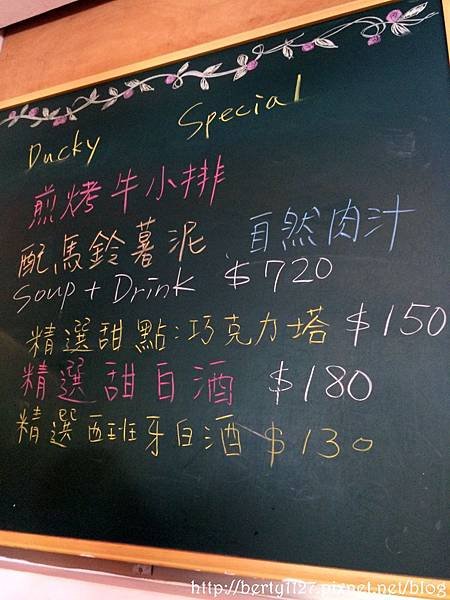 Ducky Special
煎烤牛小排
配馬鈴薯泥、自然肉汁
Soup + Drink $720
精選甜點:巧克力塔 $150
精選甜白酒 $180
精選西班牙白酒 $130
http://berty1127.pixnet.net/blog